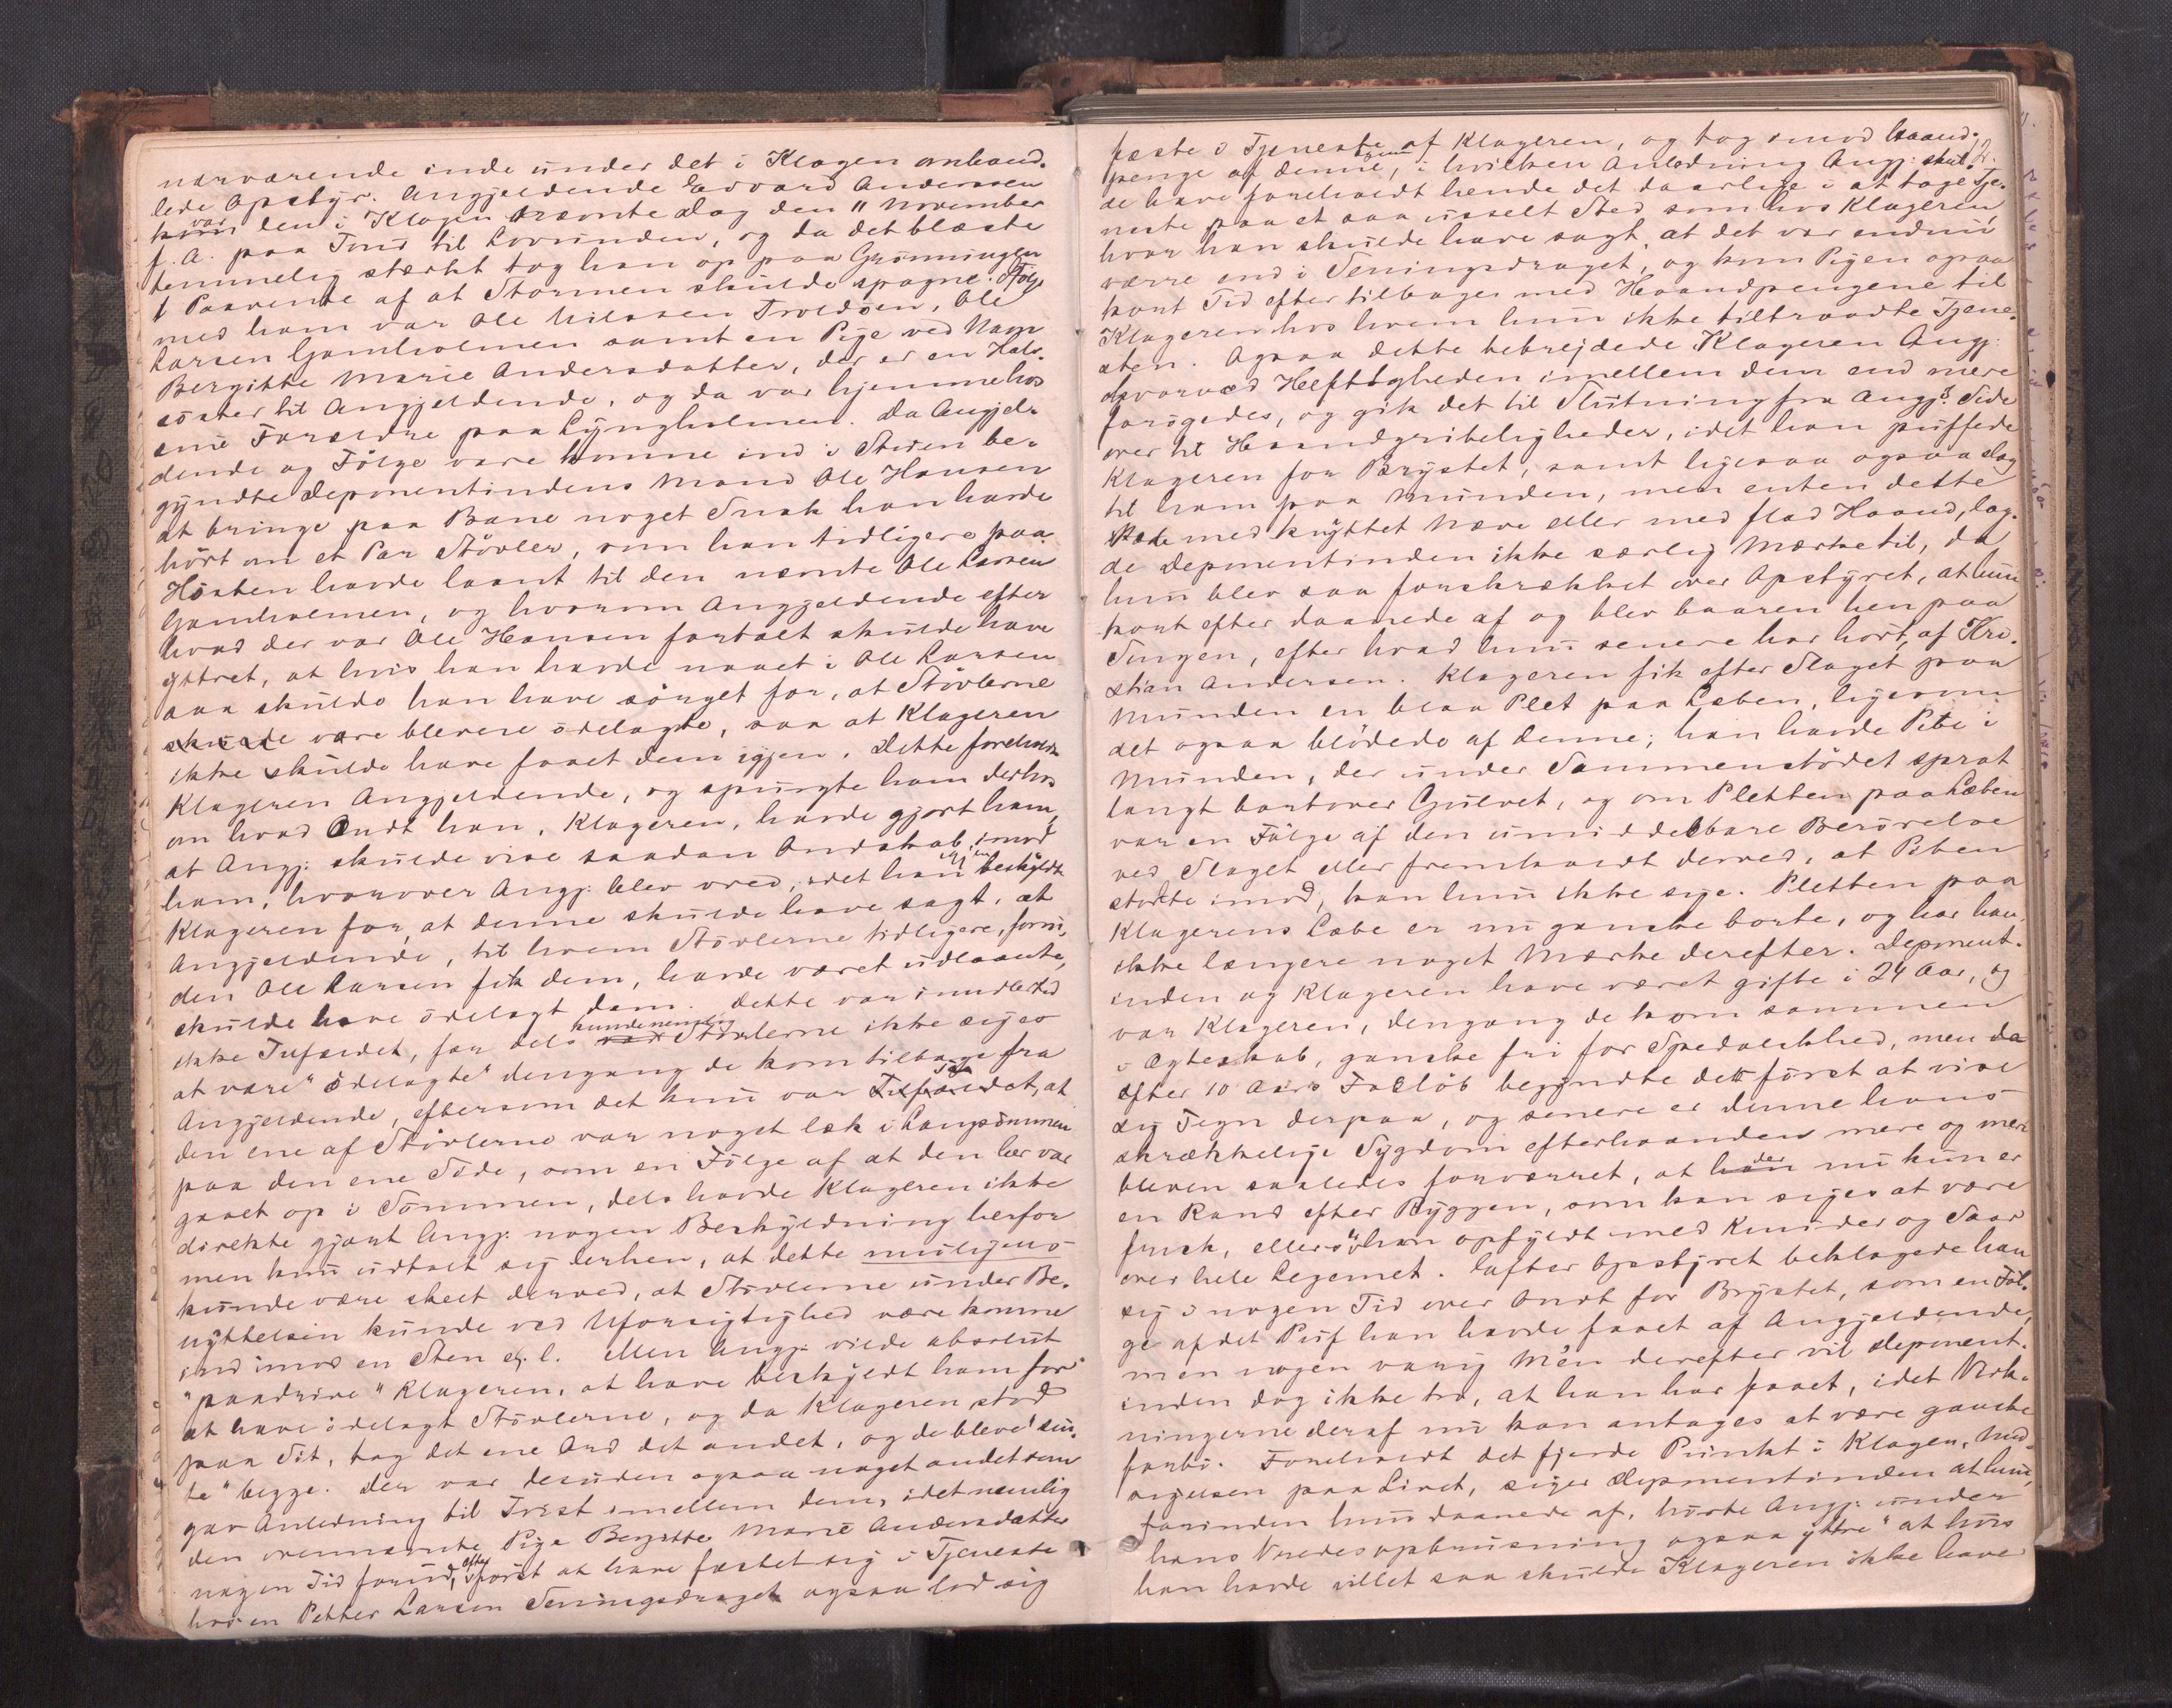 nærværende inde under det i Klagen omhand-
lede Opstyr. Angjeldende Edvard Andersen
kom var den i Klagen nævnte Dag den 11 November
f. A. paa Turd til Lovunden, og da det blæste
temmelig stærkt tog han op paa Grønningen
i Paavente af at Stormen skulde spagne. I Følge
med ham var Ole Nilssen Troldøen, Ole
Larsen Gamholmen samt en Pige ved Navn
Bergitte Marie Andersdatter, der er en Halv-
søster til Angjeldende, og da var hjemme hos
sine Forældre paa Lyngholmen. Da Angjel-
dende og Følge vare komne ind i Stuen be-
gyndte Deponentindens Mand Ole Hansen
at bringe paa Bane noget Snak han havde
hørt om et Par Støvler, som han tidligere paa
Høsten havde laant til den nævnte Ole Larsen
Gamholmen, og hvorom Angjeldende efter
hvad der var Ole Hansen fortalt skulde have
yttret, at hvis han havde naaet i Ole Larsen
saa skulde han have sørget for, at Støvlerne
skulde vare blevne ødelagte, saa at Klageren
ikke skulde have faaet dem igjen. Dette foreholdt
Klageren Angjeldende, og spurgte ham derhos
om hvad Ondt han, Klageren, havde gjort ham,
at Angj. skulde vise saadan Ondskab imod
ham, hvorover Angj. blev vred, idet han beskyldte
Klageren for, at denne skulde have sagt, at
Angjeldende, til hvem Støvlerne tidligere, forin-
den Ole Larsen fik dem, havde været udlaante,
skulde have ødelagt dem. Dette var imidlertid
ikke Tilfældet, for dels kunde nemlig Støvlerne ikke siges
at være "ødelagte" dengang de kom tilbage fra
Angjeldende, eftersom det kun var Tilfældet, at
den ene af Støvlerne var noget læk i Langsømmen
paa den ene Side, som en Følge af at den her var
gaaet op i Sømmen, dels havde Klageren ikke
direkte gjort Angj. nogen Beskyldning herfor
men kun udtalt sig derhen, at dette muligens
kunde være skeet derved, at Støvlerne under Be-
nyttelsen kunde ved Uforsigtighed være komne
ind imod en Sten e. l. Men Angj. vilde absolut
"paadrive" Klageren, at have beskyldt ham for
at have ødelagt Støvlerne, og da Klageren stod
paa Sit, tog det ene Ord det andet, og de bleve "sin-
te" begge. Der var desuden ogsaa noget andet som
gav Anledning til Tvist imellem dem, idet nemlig
den ovennævnte Pige Bergitte Marie Andersdatter
nogen Tid forud, efter først at have fæstet sig i Tjeneste
hos en Petter Larsen Seningsdraget ogsaa lod sig
fæste i Tjeneste af Klageren, og tog imod Haand-
penge af denne, i hvilken Anledning Angj. skul-
de have foreholdt hende det daarlige i at tage Tje-
neste paa et saa usselt Sted som hos Klageren,
hvor han skulde have sagt, at det var endnu
værre end i Seningsdraget, og kom Pigen ogsaa
kort Tid efter tilbage med Haandpengene til
Klageren hos hvem hun ikke tiltraadte Tjene-
sten. Ogsaa dette bebrejdede Klageren Angj.
hvorved Heftigheden imellem dem end mere
forøgedes, og gik det til Slutning fra Angj.s Side
over til Haandgribeligheder, idet han puffede
Klageren for Brystet, samt ligesaa ogsaa slog
til ham paa Munden, men enten dette
skete med knyttet Næve eller med flad Haand, lag-
de Deponentinden ikke særlig Mærke til, da
hun blev saa forskrækket over Opstyret, at hun
kort efter daanede af og blev baaren hen paa
Sengen, efter hvad hun senere har hørt, af Kri-
stian Andersen. Klageren fik efter Slaget paa
Munden en blaa Plet paa Læben, ligesom
det ogsaa blødede af denne; han havde Pibe i
Munden, der under Sammenstødet sprat
langt bortover Gulvet, og om Pletten paa Læben
var en Følge af den umiddelbare Berørelse
ved Slaget eller fremkaldt derved, at Piben
stødte imod, kan hun ikke sige. Pletten paa
Klagerens Læbe er nu ganske borte, og har han
ikke længere noget Mærke derefter. Deponent-
inden og Klageren have været gifte i 24 Aar, og
var Klageren, dengang de kom sammen
i Ægteskab, ganske fri for Spedalskhed, men da
efter 10 Aars Forløb begyndte det først at vise
sig Tegn derpaa, og senere er denne hans
skrækkelige Sygdom efterhaanden mere og mere
bleven saaledes forværret, at der nu kun er
en Rand efter Ryggen, som kan siges at være
frisk, ellers er han opfyldt med Knuder og Saar
over hele Legemet. Efter Opstyret beklagede han
sig i nogen Tid over Ondt for Brystet, som en Føl-
ge af det Puf han havde faaet af Angjeldende,
men nogen varig Mén derefter vil Deponent-
inden dog ikke tro, at han har faaet, idet Virk-
ningerne deraf nu kan antages at være ganske
forbi. Foreholdt det fjerde Punkt i Klagen, und-
sigelsen paa Livet, siger Deponentinden at hun,
forinden hun daanede af, hørte Angj. under
hans Vredesopbrusning ogsaa yttre "at hvis
han havde villet saa skulde Klageren ikke have